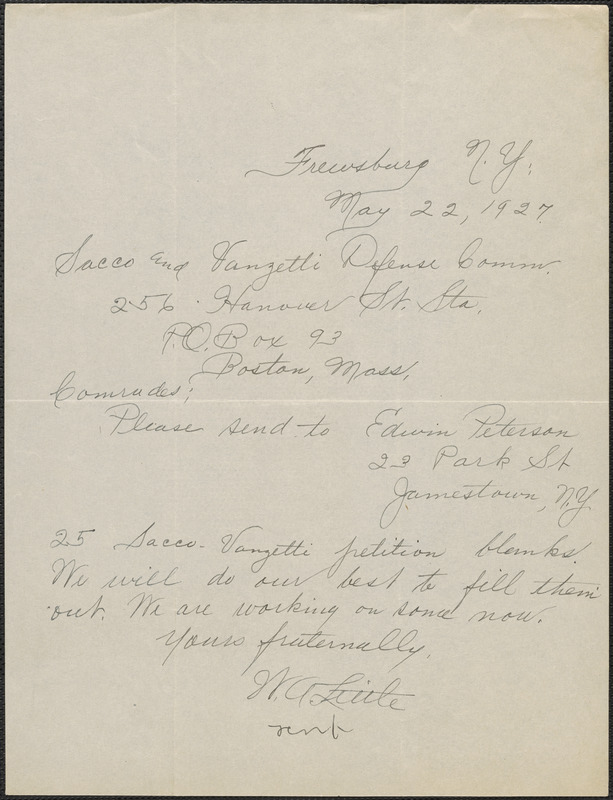 Frewsburg N.Y.
May 22, 1927
Sacco and Vanzetti Defense Comm.
256 Hanover St. Sta.
P.O. Box 93
Boston, Mass.
Comrades;
Please send to Edwin Peterson
22 Park St
Jamestown, N.Y.
25 Sacco-Vanzetti petition blanks.
We will do our best to fill them
out. We are working on some now.
Yours fraternally,
W. A. Little